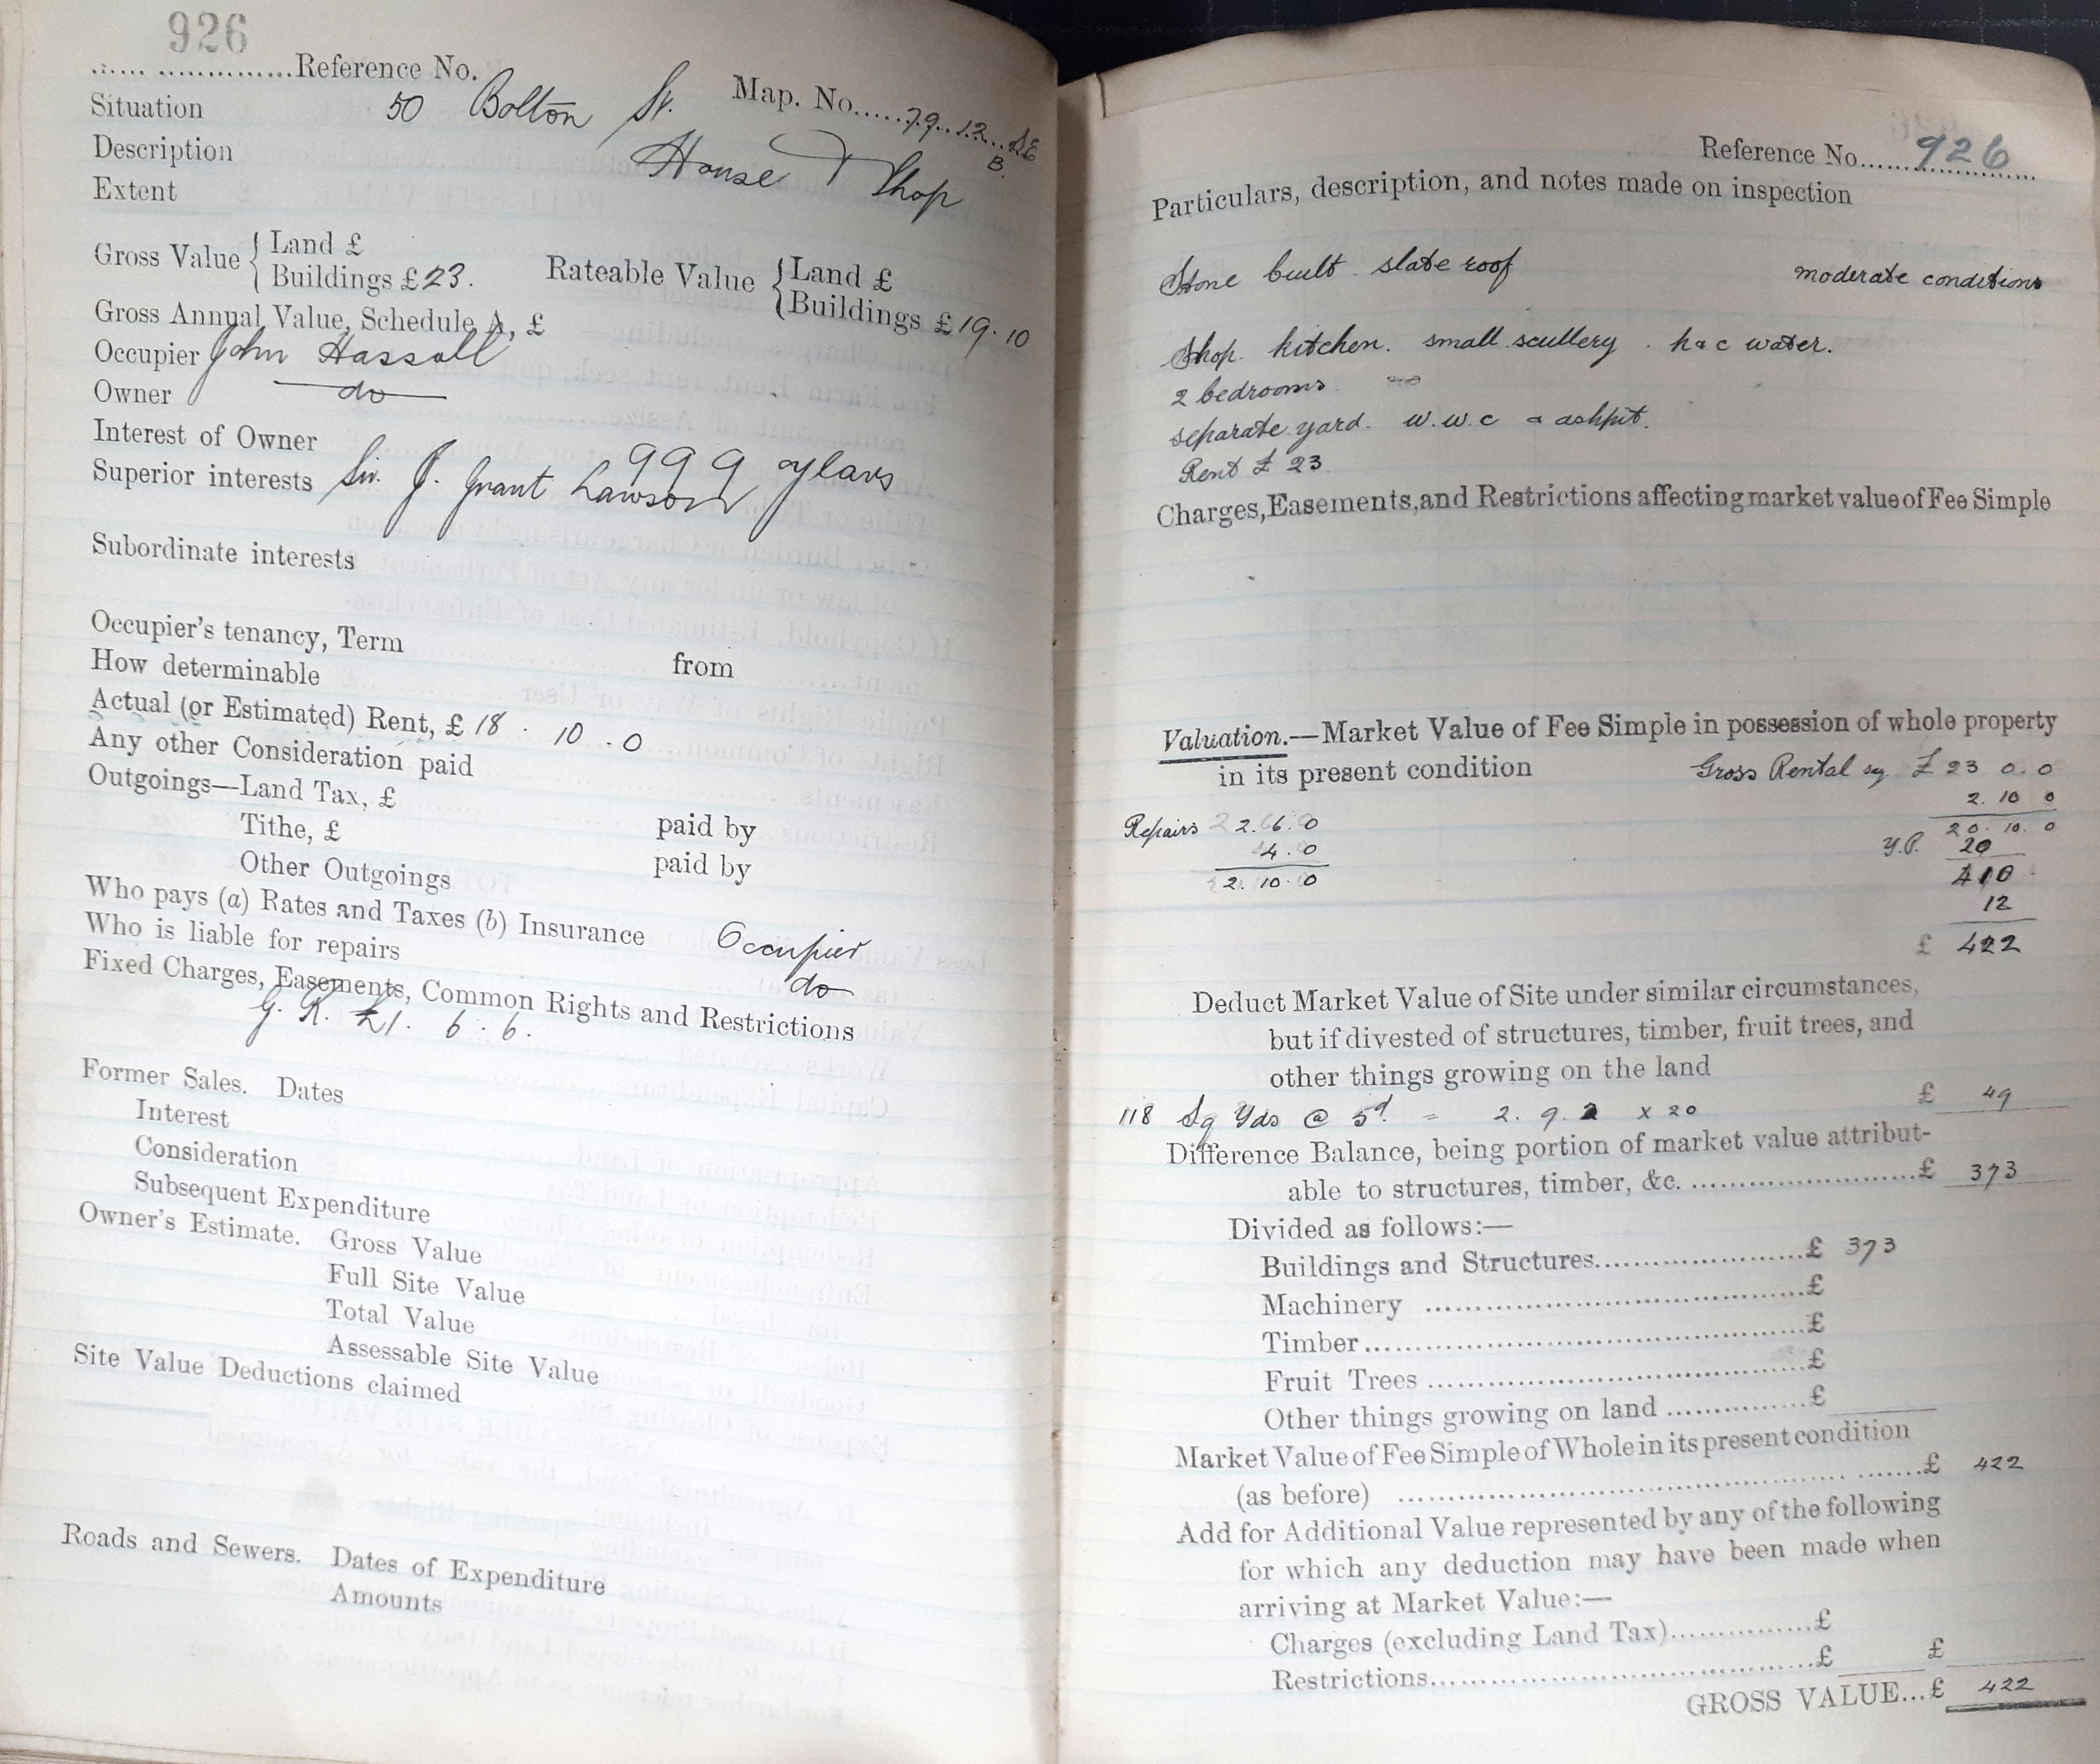 926
...... ..............Reference No.
Map. No.....79..12...SE
B.
Situation 50 Bolton St.
Description House & Shop
Extent
Gross Value { Land £
Buildings £23.
Rateable Value { Land £
Buildings £19.10
Gross Annual Value, Schedule A, £
Occupier John Hassall
Owner do
Interest of Owner 999 years
Superior interests Sir. J. Grant Lawson
Subordinate interests
Occupier's tenancy, Term from
How determinable
Actual (or Estimated) Rent, £ 18 . 10 . 0
Any other Consideration paid
Outgoings—Land Tax, £
Tithe, £ paid by
Other Outgoings paid by
Who pays (a) Rates and Taxes (b) Insurance Occupier
Who is liable for repairs do
Fixed Charges, Easements, Common Rights and Restrictions
G. R. £1. 6. 6.
Former Sales. Dates
Interest
Consideration
Subsequent Expenditure
Owner's Estimate. Gross Value
Full Site Value
Total Value
Assessable Site Value
Site Value Deductions claimed
Roads and Sewers. Dates of Expenditure
Amounts
Reference No......926
Particulars, description, and notes made on inspection
Stone built. slate roof moderate conditions
Shop. kitchen. small scullery. h & c water.
2 bedrooms
separate yard. w.w.c & ashpit.
Rent £ 23
Charges, Easements, and Restrictions affecting market value of Fee Simple
Valuation.—Market Value of Fee Simple in possession of whole property
in its present condition Gross Rental sy. £ 23 0. 0
2. 10 0
Repairs 2. 6. 0
20. 10. 0
4. 0
Y.P. 20
2. 10. 0
410
12
£ 422
Deduct Market Value of Site under similar circumstances,
but if divested of structures, timber, fruit trees, and
other things growing on the land
118 Sq Yds @ 5d = 2. 9. 2 x 20 £ 49
Difference Balance, being portion of market value attribut-
able to structures, timber, &c. ..........................£ 373
Divided as follows:—
Buildings and Structures.......................£ 373
Machinery .............................................£
Timber.....................................................£
Fruit Trees .............................................£
Other things growing on land ................£
Market Value of Fee Simple of Whole in its present condition
(as before) ....................................................£ 422
Add for Additional Value represented by any of the following
for which any deduction may have been made when
arriving at Market Value:—
Charges (excluding Land Tax)................£
Restrictions............................................£ £
GROSS VALUE...£ 422